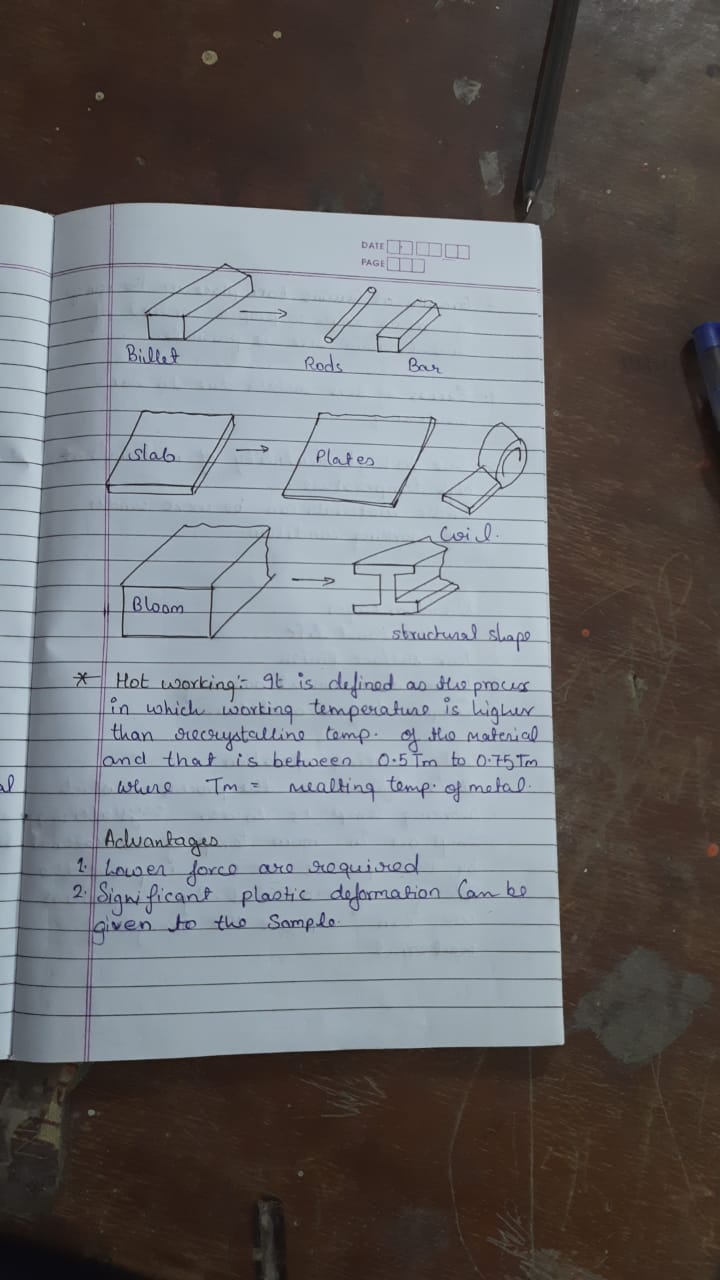 DATE
PAGE
Billet
Rods
Bar
Slab
Plates
Coil.
Bloom
structural shape
* Hot working:- It is defined as the process
in which working temperature is higher
than recrystalline temp. of the material
and that is between 0.5Tm to 0.75Tm
where Tm = mealting temp. of metal.
Advantages
1. Lower force are required
2. Significant plastic deformation Can be
given to the Sample.